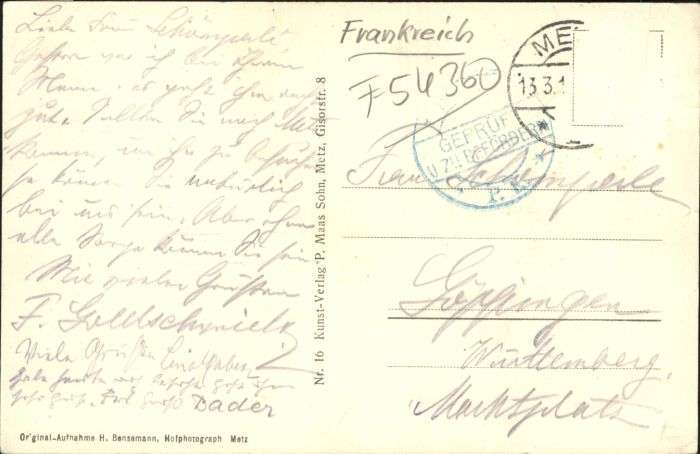 Liebe Frau Schömperle
Gestern war ich bei Ihrem
Mann, es geht ihm
gut. Sollten Sie nach Metz
kommen, um ihn zu besuchen
so können Sie natürlich
bei uns sein. Aber ohne
alle Sorge können Sie sein
Mit vielen Grüssen
F. Goldschmidt
Viele Grüße
habe heute
Bader
Original-Aufnahme H. Bensemann, Hofphotograph Metz
Nr. 16 Kunst-Verlag P. Maas Sohn, Metz, Gisorstr. 8
Frankreich
F 54360
ME
13.3.1
GEPRÜFT
U. ZU BEFÖRDERN
Frau Schömperle
Göppingen
Württemberg
Marktplatz